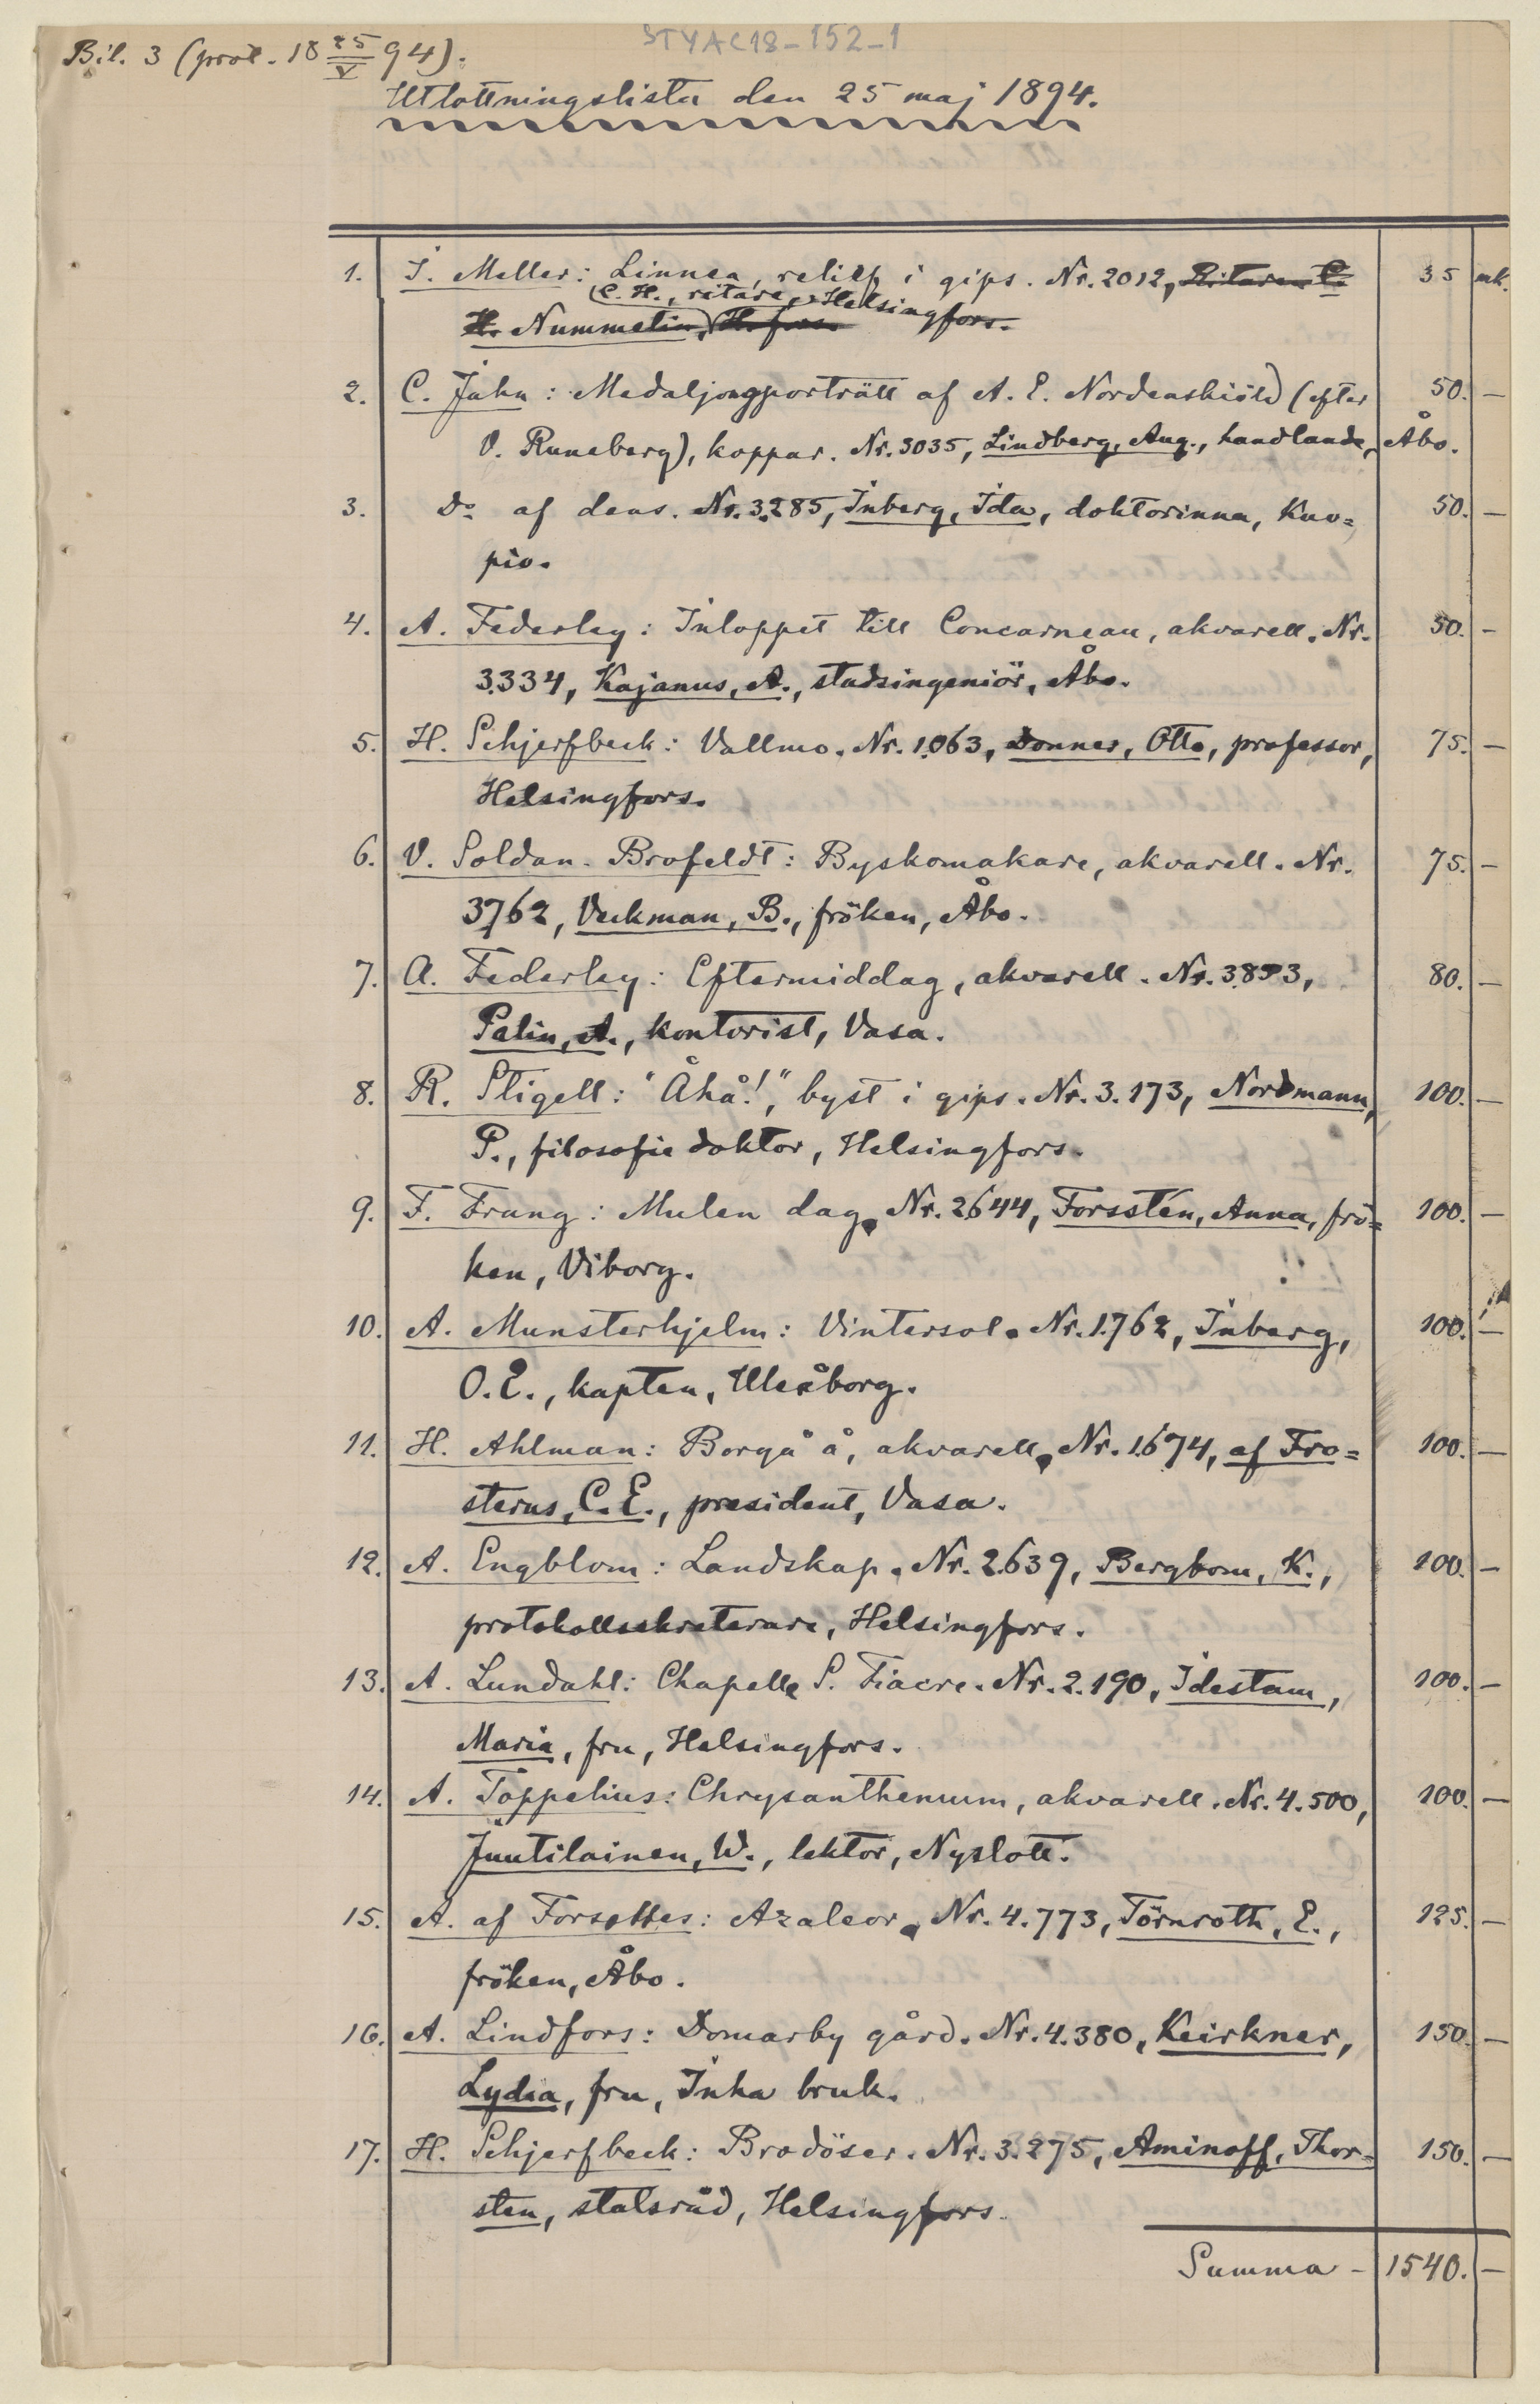 STYAC18-152-1
Bil. 3 (prot. 18 25/V 94).
Utlottningslista den 25 maj 1894.
1. I. Meller: Linnea, relief i gips. Nr. 2012, Ritaren C. 35 mk.
(C. H., ritare, Helsingfors.
H. Nummelin, H.fors.
2. C. Jahn: Medaljongporträtt af A. E. Nordenskiöld (efter 50. —
V. Runeberg), koppar. Nr. 3035, Lindberg, Aug., handlande, Åbo.
3. Do af dens. Nr. 3.285, Inberg, Ida, doktorinna, Kuo= 50. —
pio.
4. A. Federley: Inloppet till Concarneau, akvarell. Nr. 50. —
3.334, Kajanus, A., stadsingeniör, Åbo.
5. H. Schjerfbeck: Vallmo. Nr. 1.063, Donner, Otto, professor, 75. —
Helsingfors.
6. V. Soldan-Brofeldt: Byskomakare, akvarell. Nr. 75. —
3762, Veckman, B., fröken, Åbo.
7. A. Federley: Eftermiddag, akvarell. Nr. 3.893, 80. —
Palin, A., kontorist, Vasa.
8. R. Stigell: "Åhå!", byst i gips. Nr. 3.173, Nordmann, 100. —
P., filosofie doktor, Helsingfors.
9. F. Frang: Mulen dag. Nr. 2644, Forsstén, Anna, frö= 100. —
ken, Viborg.
10. A. Munsterhjelm: Vintersol. Nr. 1.762, Inberg, 100. —
O. E., kapten, Uleåborg.
11. H. Ahlman: Borgå å, akvarell, Nr. 1.674, af Fro= 100. —
sterus, C. E., president, Vasa.
12. A. Engblom: Landskap. Nr. 2.639, Bergbom, K., 100. —
protokollsekreterare, Helsingfors.
13. A. Lundahl: Chapelle S. Fiacre. Nr. 2.190, Idestam, 100. —
Maria, fru, Helsingfors.
14. A. Toppelius: Chrysanthemum, akvarell. Nr. 4.500, 100. —
Juutilainen, W., lektor, Nyslott.
15. A. af Forselles: Azaleor. Nr. 4.773, Törnroth, E., 125. —
fröken, Åbo.
16. A. Lindfors: Domarby gård. Nr. 4.380, Keirkner, 150. —
Lydia, fru, Inha bruk.
17. H. Schjerfbeck: Brodöser. Nr. 3.275, Aminoff, Thor- 150. —
sten, statsråd, Helsingfors.
Summa - 1540. —